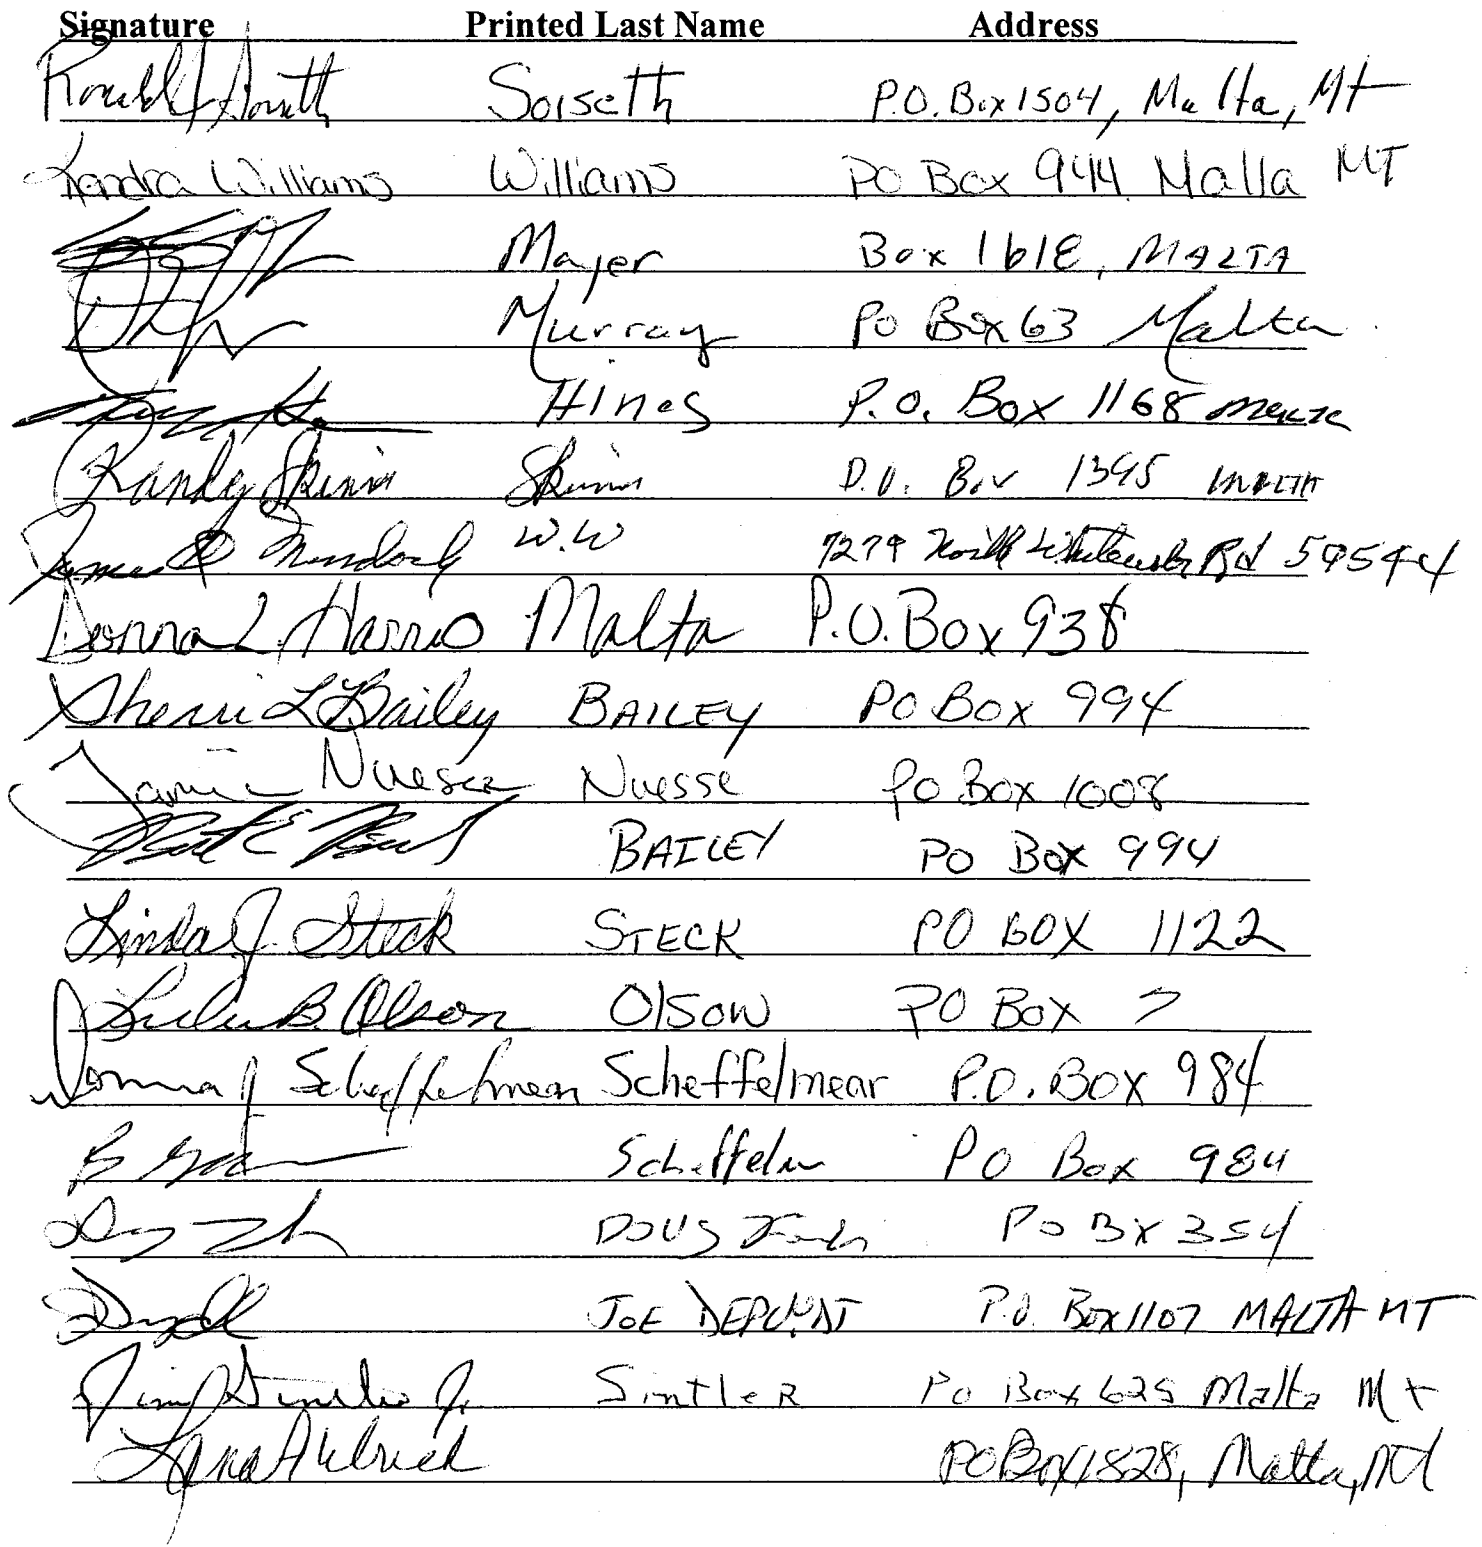 Signature Printed Last Name Address
Ronald J Sorseth Sorseth P.O. Box 1504, Malta, Mt
Kendra Williams Williams PO Box 944 Malta MT
Mayer Box 1618, MALTA
Murray Po Box 63 Malta
Hines P.O. Box 1168 Malta
Randy Skinner Skinner P.O. Box 1395 MALTA
James W.W 7279 North Whitewater Rd 59544
Donna L Harris Malta P.O. Box 938
Sherri L Bailey BAILEY PO Box 994
Jamie Nuesse Nuesse PO Box 1008
BAILEY PO Box 994
Linda J. Steck STECK PO BOX 1122
B. Olson Olson PO Box 7
Donna J Scheffelmaer Scheffelmear P.O. Box 984
PO Box 984
DOUG PO BX 354
JOE P.O. Box 1107 MALTA MT
Jim Jr. SintleR Po Box 625 Malta Mt
Lana PO Box 1828, Malta, Mt